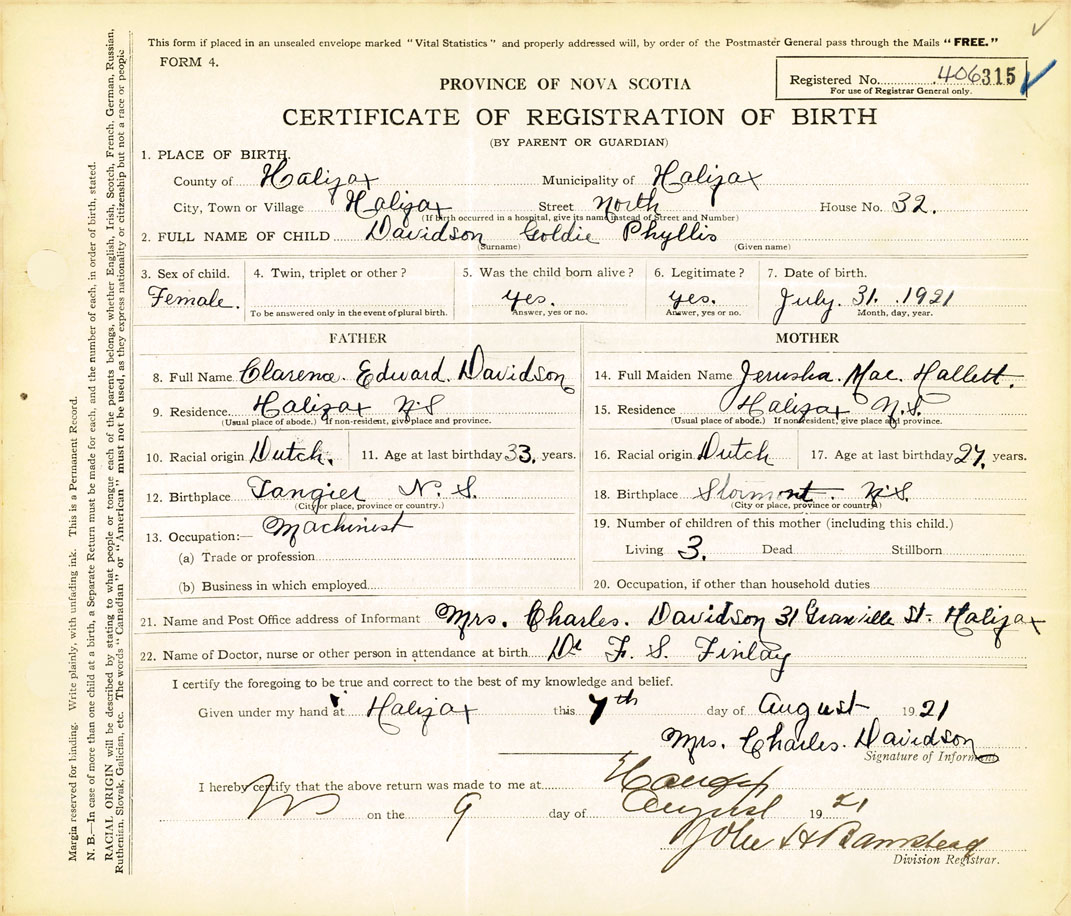 This form if placed in an unsealed envelope marked "Vital Statistics" and properly addressed will, by order of the Postmaster General pass through the Mails "FREE."
FORM 4.
Registered No. 406315
For use of Registrar General only.
PROVINCE OF NOVA SCOTIA
CERTIFICATE OF REGISTRATION OF BIRTH
(BY PARENT OR GUARDIAN)
1. PLACE OF BIRTH.
County of Halifax Municipality of Halifax
City, Town or Village Halifax Street North House No. 32.
(If birth occurred in a hospital, give its name instead of Street and Number)
2. FULL NAME OF CHILD Davidson Goldie Phyllis
(Surname) (Given name)
3. Sex of child. 4. Twin, triplet or other? 5. Was the child born alive? 6. Legitimate? 7. Date of birth.
Female. yes. yes. July. 31. 1921
To be answered only in the event of plural birth. Answer, yes or no. Answer, yes or no. Month, day, year.
FATHER
8. Full Name Clarence. Edward. Davidson
9. Residence Halifax N.S
(Usual place of abode.) If non-resident, give place and province.
10. Racial origin Dutch. 11. Age at last birthday 33. years.
12. Birthplace Tangier N. S.
(City or place, province or country.)
13. Occupation:— Machinist
(a) Trade or profession
(b) Business in which employed
MOTHER
14. Full Maiden Name Jerusha. Mae. Hallett.
15. Residence Halifax N.S.
(Usual place of abode.) If non-resident, give place and province.
16. Racial origin Dutch 17. Age at last birthday 27. years.
18. Birthplace Stormont. N.S.
(City or place, province or country.)
19. Number of children of this mother (including this child.)
Living 3. Dead Stillborn
20. Occupation, if other than household duties
21. Name and Post Office address of Informant Mrs. Charles. Davidson 31 Granville St. Halifax
22. Name of Doctor, nurse or other person in attendance at birth Dr F. S. Finlay
I certify the foregoing to be true and correct to the best of my knowledge and belief.
Given under my hand at Halifax this 7th day of August 1921
Mrs. Charles. Davidson
Signature of Informant
I hereby certify that the above return was made to me at Halifax
on the 9 day of August 1921
John H Barnstead
Division Registrar.
Margin reserved for binding. Write plainly, with unfading ink. This is a Permanent Record.
N. B.—In case of more than one child at a birth, a Separate Return must be made for each, and the number of each, in order of birth, stated.
RACIAL ORIGIN will be described by stating to what people or tongue each of the parents belongs, whether English, Irish, Scotch, French, German, Russian,
Ruthenian, Slovak, Galician, etc. The words "Canadian" or "American" must not be used, as they express nationality or citizenship but not a race or people